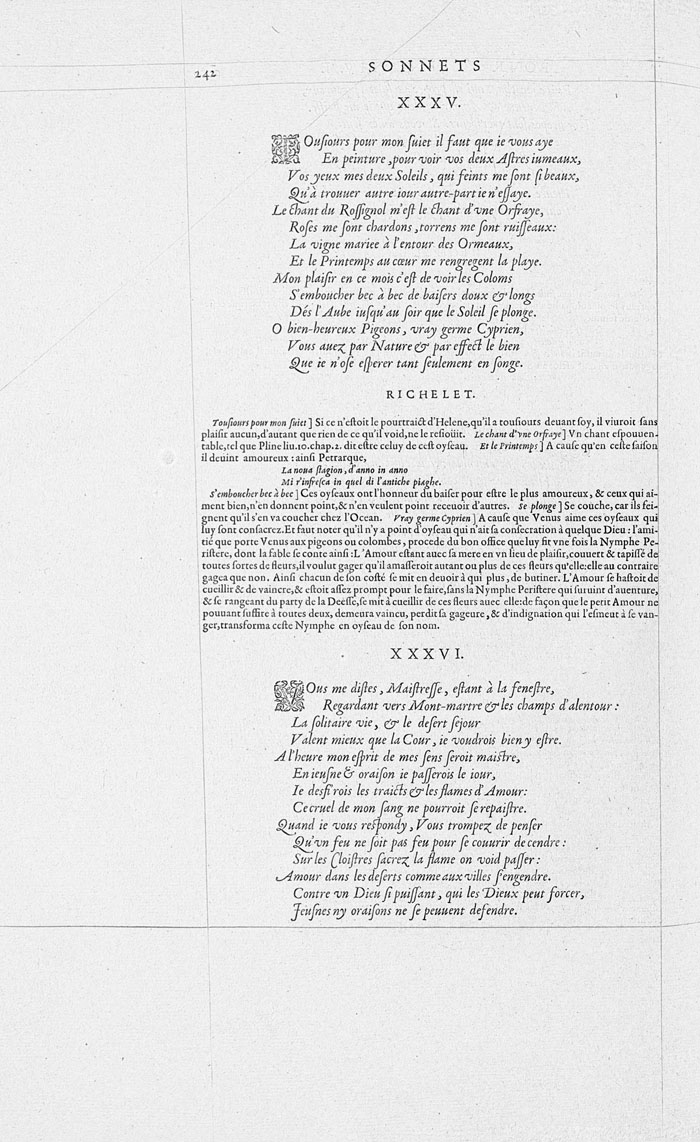 242
SONNETS
XXXV.
TOuſiours pour mon ſuiet il faut que ie vous aye
En peinture, pour voir vos deux Aſtres iumeaux,
Vos yeux mes deux Soleils, qui feints me ſont ſi beaux,
Qu'à trouuer autre iour autre-part ie n'eſſaye.
Le chant du Roſſignol m'eſt le chant d'vne Orfraye,
Roſes me ſont chardons, torrens me ſont ruiſſeaux:
La vigne mariee à l'entour des Ormeaux,
Et le Printemps au cœur me rengregent la playe.
Mon plaiſir en ce mois c'eſt de voir les Coloms
S'emboucher bec à bec de baiſers doux & longs
Dés l'Aube iuſqu'au ſoir que le Soleil ſe plonge.
O bien-heureux Pigeons, vray germe Cyprien,
Vous auez par Nature & par effect le bien
Que ie n'oſe eſperer tant ſeulement en ſonge.
RICHELET.
Touſiours pour mon ſuiet] Si ce n'eſtoit le pourtraict d'Helene, qu'il a touſiours deuant ſoy, il viuroit ſans
plaiſir aucun, d'autant que rien de ce qu'il void, ne le reſioüit. Le chant d'vne Orfraye] Vn chant eſpouuen-
table, tel que Pline liu. 10. chap. 2. dit eſtre celuy de ceſt oyſeau. Et le Printemps] A cauſe qu'en ceſte ſaiſon
il deuint amoureux: ainſi Petrarque,
La noua ſtagion, d'anno in anno
Mi r'infreſca in quel dì l'antiche piaghe.
S'emboucher bec à bec] Ces oyſeaux ont l'honneur du baiſer pour eſtre le plus amoureux, & ceux qui ai-
ment bien, n'en donnent point, & n'en veulent point receuoir d'autres. Se plonge] Se couche, car ils fei-
gnent qu'il s'en va coucher chez l'Ocean. Vray germe Cyprien] A cauſe que Venus aime ces oyſeaux qui
luy ſont conſacrez. Et faut noter qu'il n'y a point d'oyſeau qui n'ait ſa conſecration à quelque Dieu: l'ami-
tié que porte Venus aux pigeons ou colombes, procede du bon office que luy fit vne fois la Nymphe Pe-
riſtere, dont la fable ſe conte ainſi: L'Amour eſtant auec ſa mere en vn lieu de plaiſir, couuert & tapiſſé de
toutes ſortes de fleurs, il voulut gager qu'il amaſſeroit autant ou plus de ces fleurs qu'elle: elle au contraire
gagea que non. Ainſi chacun de ſon coſté ſe mit en deuoir à qui plus, de butiner. L'Amour ſe haſtoit de
cueillir & de vaincre, & eſtoit aſſez prompt pour le faire, ſans la Nymphe Periſtere qui ſuruint d'auenture,
& ſe rangeant du party de la Deeſſe, ſe mit à cueillir de ces fleurs auec elle: de façon que le petit Amour ne
pouuant ſuffire à toutes deux, demeura vaincu, perdit ſa gageure, & d'indignation qui l'eſmeut à ſe van-
ger, transforma ceſte Nymphe en oyſeau de ſon nom.
XXXVI.
VOus me diſtes, Maiſtreſſe, eſtant à la feneſtre,
Regardant vers Mont-martre & les champs d'alentour:
La ſolitaire vie, & le deſert ſejour
Valent mieux que la Cour, ie voudrois bien y eſtre.
A l'heure mon eſprit de mes ſens ſeroit maiſtre,
En ieuſne & oraiſon ie paſſerois le iour,
Ie desfi'rois les traicts & les flames d'Amour:
Ce cruel de mon ſang ne pourroit ſe repaiſtre.
Quand ie vous reſpondy, Vous trompez de penſer
Qu'vn feu ne ſoit pas feu pour ſe couurir de cendre:
Sur les Cloiſtres ſacrez la flame on void paſſer:
Amour dans les deſerts comme aux villes s'engendre.
Contre vn Dieu ſi puiſſant, qui les Dieux peut forcer,
Jeuſnes ny oraiſons ne ſe peuuent defendre.